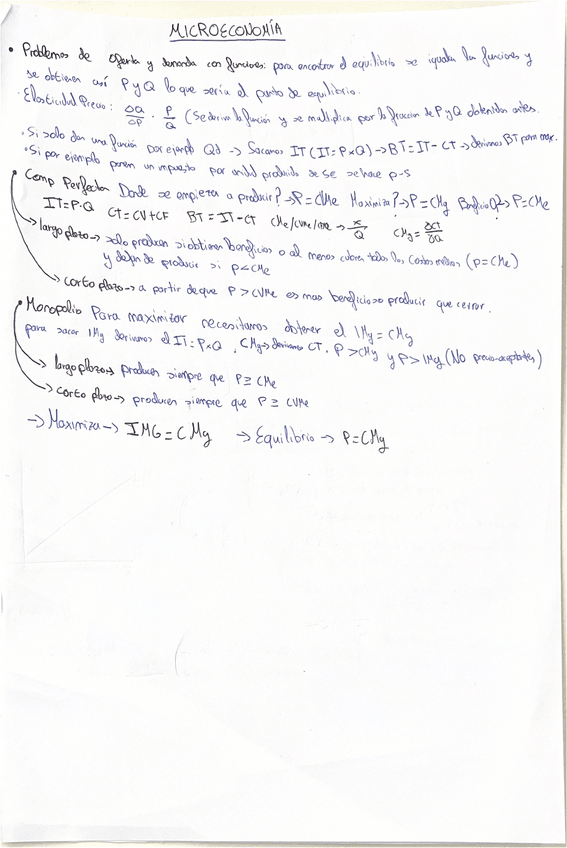 MICROECONOMÍA
• Problemas de oferta y demanda con funciones: para encontrar el equilibrio se igualan las funciones y
se obtienen así P y Q lo que sería el punto de equilibrio.
· Elasticidad Precio: ΔQ/ΔP · P/Q (Se deriva la función y se multiplica por la fracción de P y Q obtenidos antes.
· Si solo dan una función por ejemplo Qd → Sacamos IT (IT=P×Q) → BT=IT-CT → derivamos BT para max.
· Si por ejemplo ponen un impuesto por unidad producida se hace p-5
• Comp Perfecta Donde se empieza a producir? → P=CVMe Maximiza? → P=CMg Beneficio 0? → P=CMe
IT=P·Q CT=CV+CF BT=IT-CT CMe/CVMe/ → x/Q CMg=ΔCT/ΔQ
→ largo plazo → solo producen si obtienen beneficios o al menos cubren todos los Costes medios (p=CMe)
y dejan de producir si p<CMe
→ corto plazo → a partir de que P > CVMe es mas beneficioso producir que cerrar.
• Monopolio Para maximizar necesitamos obtener el IMg=CMg
para sacar IMg derivamos el IT=P×Q, CMg → derivamos CT. P>CMg y P>IMg (No precio-aceptantes)
→ largo plazo → producen siempre que P≥CMe
→ corto plazo → producen siempre que P≥CVMe
→ Maximiza → IMG=CMg → Equilibrio → P=CMg